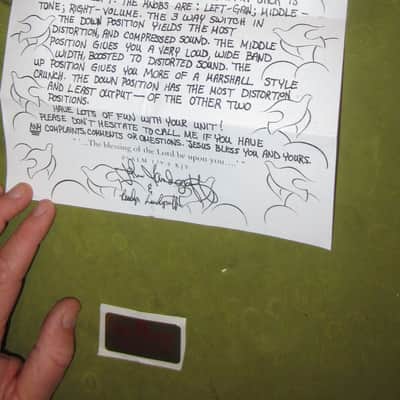 TONE; RIGHT-VOLUME. THE 3 WAY SWITCH IN
THE DOWN POSITION YIELDS THE MOST
DISTORTION, AND COMPRESSED SOUND. THE MIDDLE
POSITION GIVES YOU A VERY LOUD, WIDE BAND
WIDTH, BOOSTED TO DISTORTED SOUND. THE
UP POSITION GIVES YOU MORE OF A MARSHALL STYLE
CRUNCH. THE DOWN POSITION HAS THE MOST DISTORTION
AND LEAST OUTPUT — OF THE OTHER TWO
POSITIONS.
HAVE LOTS OF FUN WITH YOUR UNIT!
PLEASE DON'T HESITATE TO CALL ME IF YOU HAVE
ANY COMPLAINTS, COMMENTS OR QUESTIONS. JESUS BLESS YOU AND YOURS.
"...The blessing of the Lord be upon you..."
&